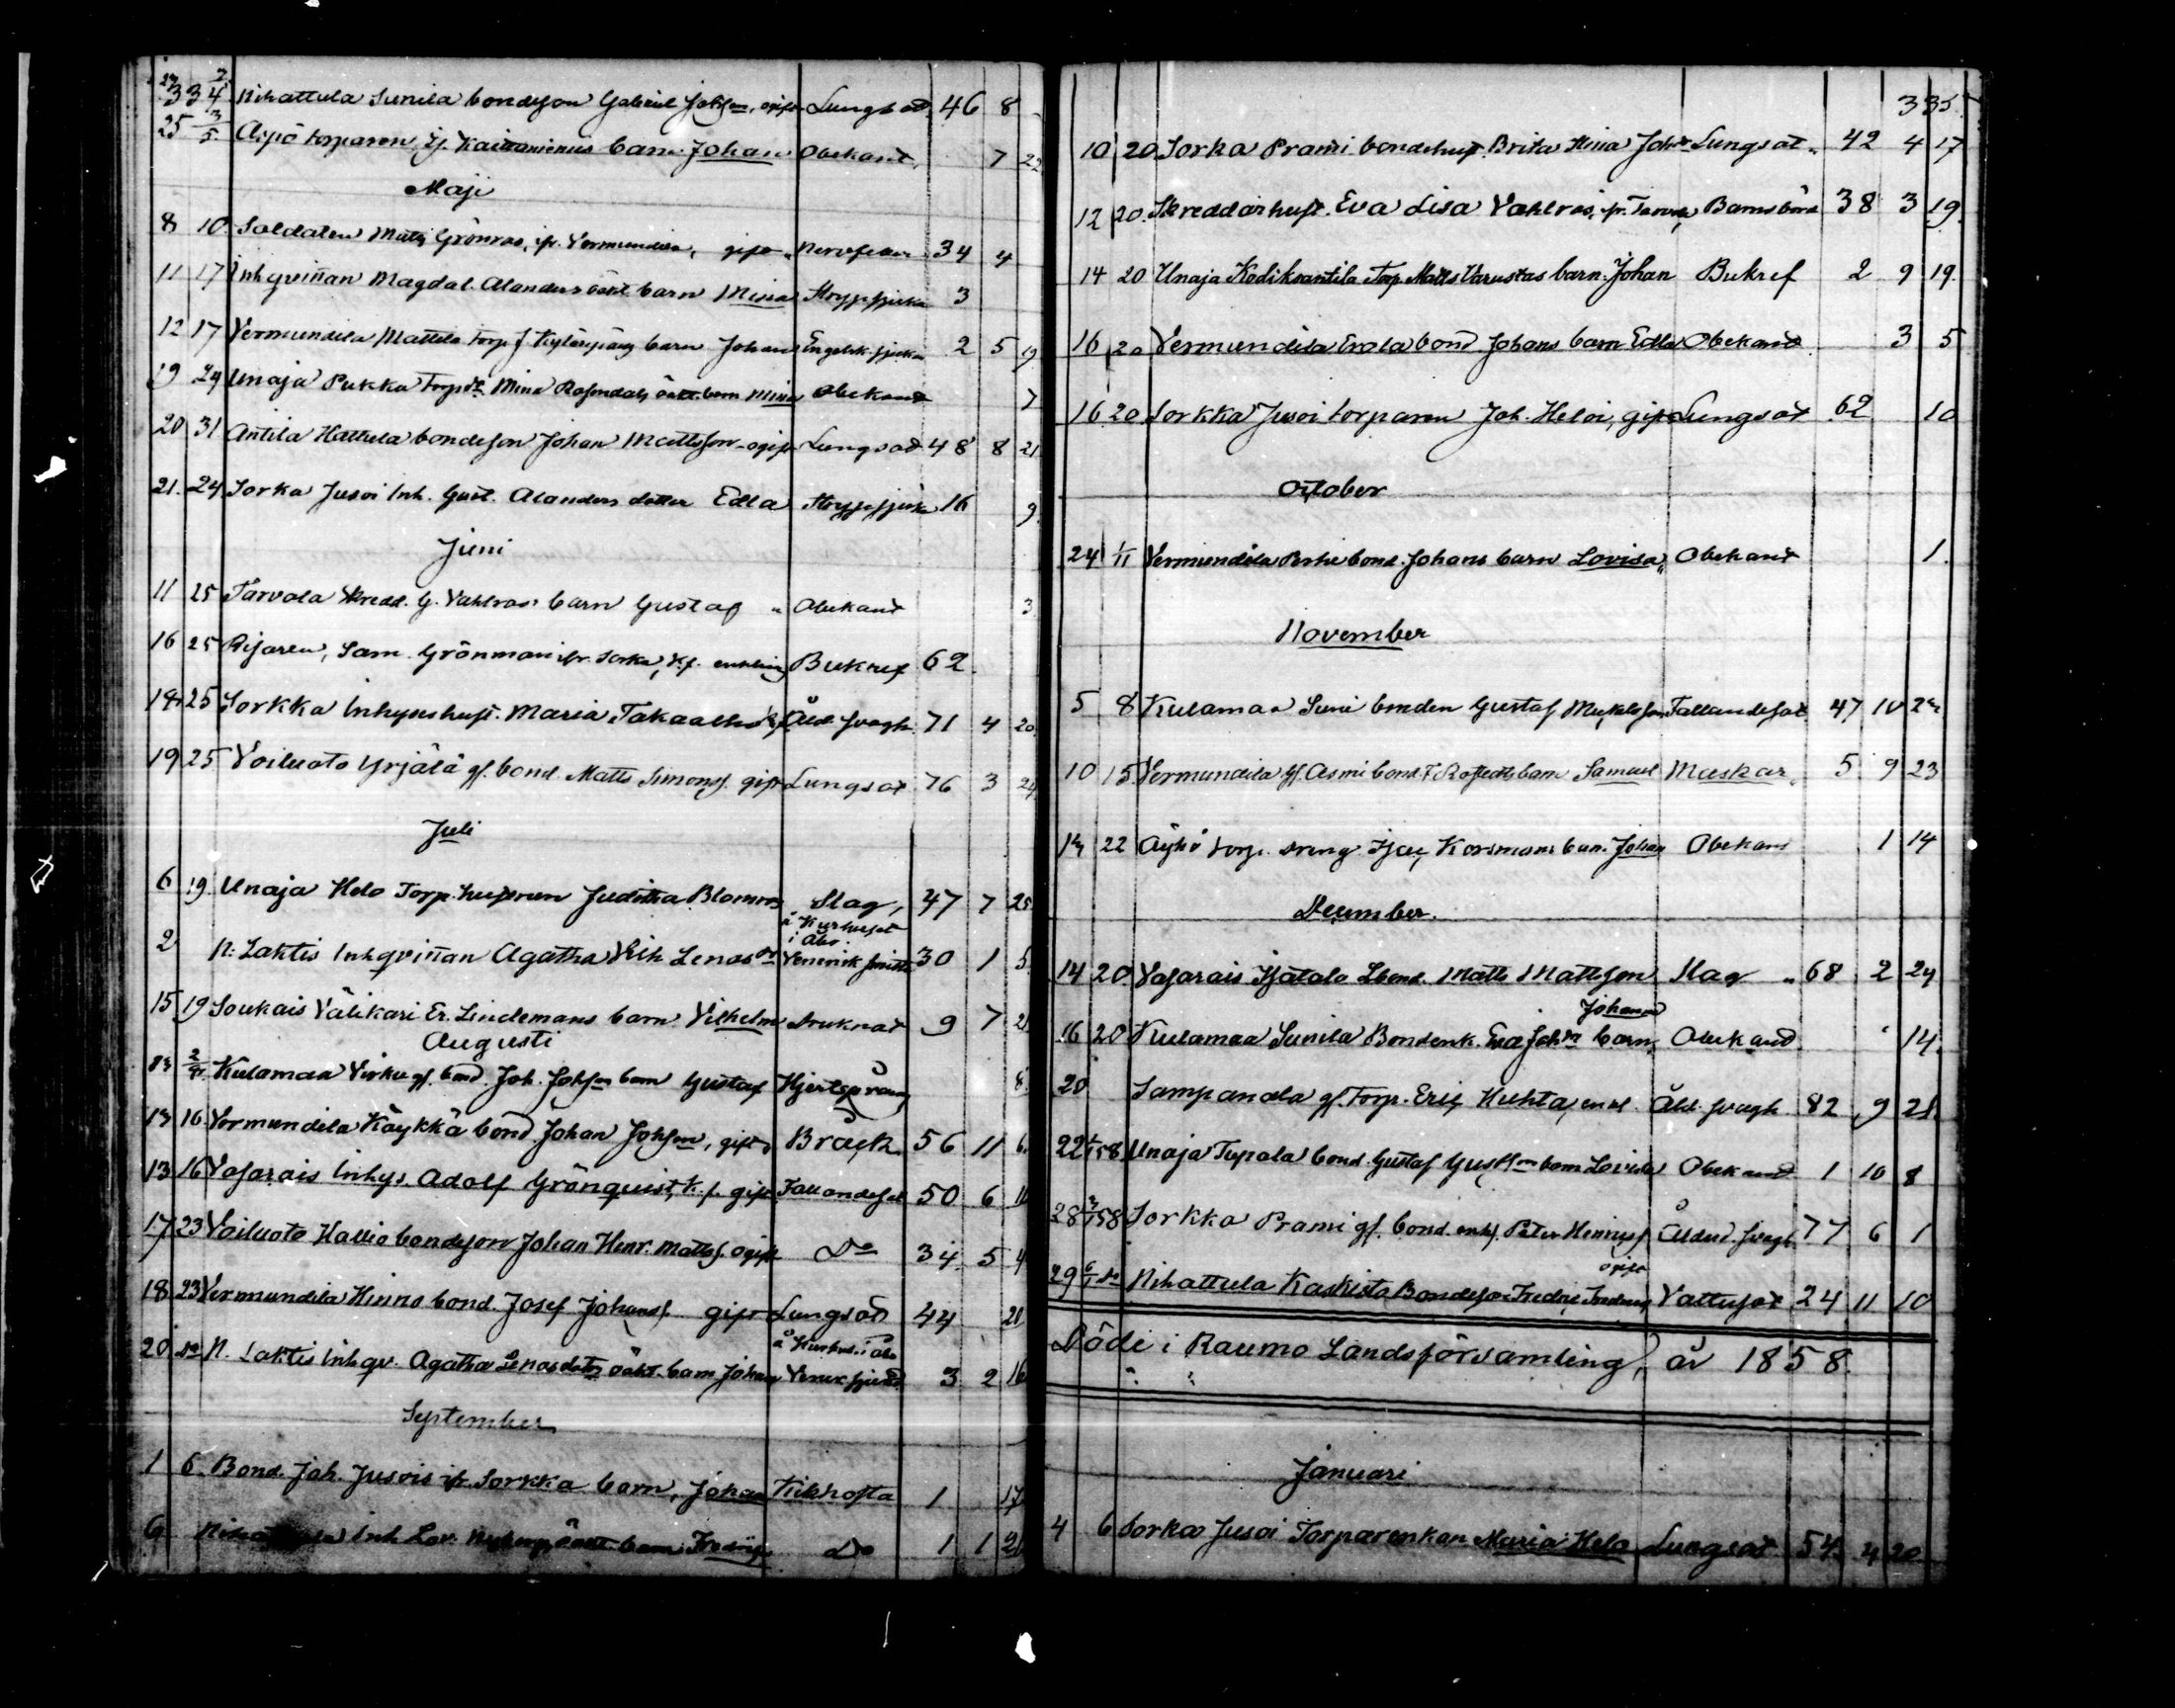 334 Nihattula Sunila bondeson Gabriel Johsson, ogift Lungsot 46 8
25 3/5 Äyhö torparen Is. Kaitaniemis barn Johan Obekant 7 22
Maji
8 10 Soldaten Matts Grönroos, fr. Vermundila, gift Nervfeber 34 4
11 17 Inhqviñan Magdal. Alanders oäkt barn Mina Kopp sjuka 3
12 17 Vermundila Mattila Torp. J. barn Johans Engelsk. sjuka 2 5 19
19 24 Unaja Pukka Torpdr. Mina Rosendals oäkt. barn Mina Obekant 7
20 31 Antila Hattula bondeson Johan Mattsson ogift Lungsot 48 8 21
21. 24 Sorka Jusoi Inh. Gust. Alanders dotter Edla Koppsjuka 16 9
Juni
11 25 Tarvola skredd. G. Vahlroos barn Gustaf " Obekant 3
16 25 Sam. Grönman ifr. Sorka, K.f. enkling Bukref 62.
19 25 Sorkka Inhyseshust. Maria Åld. svagh. 71 4 20
19 25 Voiluoto Yrjälä gf. bond. Matts Simonss. gift Lungsot 76 3 24
Juli
6 19. Unaja Helo Torp. hustrun Juditha Blomroos Slag, 47 7 25
å Kurhuset
i Åbo.
2 N. Laktis Inhqviñan Agatha Lenas dr Venerisk smitta 30 1 5
15 19 Soukais Välikari Er. Lindemans barn Vilhelm Druknat 9 7 2
Augusti
Kulamaa Virku gf. bond. Joh. Johsson barn Gustaf Hjertsprång 8
13 16 Vermundila Käykkä bond Johan Johsson, gift Bråck 56 11 6
13 16 Vasarais Inhys. Adolf Grönquist, K.f. gift Fallandesot 50 6 11
17 23 Voiluoto Hallio bondeson Johan Henr. Mattss. ogift Do 34 5 4
18 23 Vermundila Hinno bond. Josef Johanss. gift Lungsot 44 21
å Kurhus. i Åbo
20 Do N. Laktis Inhqv. Agatha Lenas dotrs oäkt. barn Johan Vener. sjukd. 3 2 16
September
1 6 Bond. Joh. Jusois ifr. Sorkka barn, Johan Kikhosta 1 17
6 Inh. Lov. oäkt barn Fredrik Do 1 1 2
335.
10 20 Sorka Prami bondehust. Brita Stina Johdr Lungsot 42 4 17
12 20. Skreddarhust. Eva Lisa Vahlroos, fr. Tarvola, Barnsbörd 38 3 19.
14 20 Unaja Kodikvantila Torp. Matts Varustas barn Johan Bukref 2 9 19
16 20 Vermundila Erola bond Johans barn Edla Obekand 3 5
16 20 Sorkka Jusoi torparen Joh. Heloi, gift Lungsot 62 10
October
24 1/11 Vermundila Perhe bond. Johans barn Lovisa " Obekant 1.
November
5 8 Kulamaa Suni bonden Gustaf Fallandesot 47 10
10 15 Vermundila gf. Asmi bond. F. barn Samuel Maskar 5 9 23
22 Äyhö torp. dreng Isac Korsmans barn Johan Obekant 1 14
December.
14 20. Vasarais Isotalo Lbond. Matts Mattsson Slag " 68 2 24
Johanna
16 20 Kulamaa Sunila Bondenk. Eva Johdr barn, Obekand 14.
20 Sampanala gf. Torp. Eric Kuhta, enkl. Åld. svagh 82 9 21
22 58 Unaja Tupala bond. Gustaf Gustsson barn Lovisa Obekand 1 10 8
28 58 Sorkka Prami gf. bond. enkl. Peter Henricss. Ålderd. svagh. 77 6 1
ogift
29 6/1 Do Nihattula Kaskisto Bondeson Fredric Fredricss Vattusot 24 11 10
Döde i Raumo Landsförsamling, år 1858.
Januari
4 6 Sorka Jusoi Torparenkan Maria Helo Lungsot 54 4 20